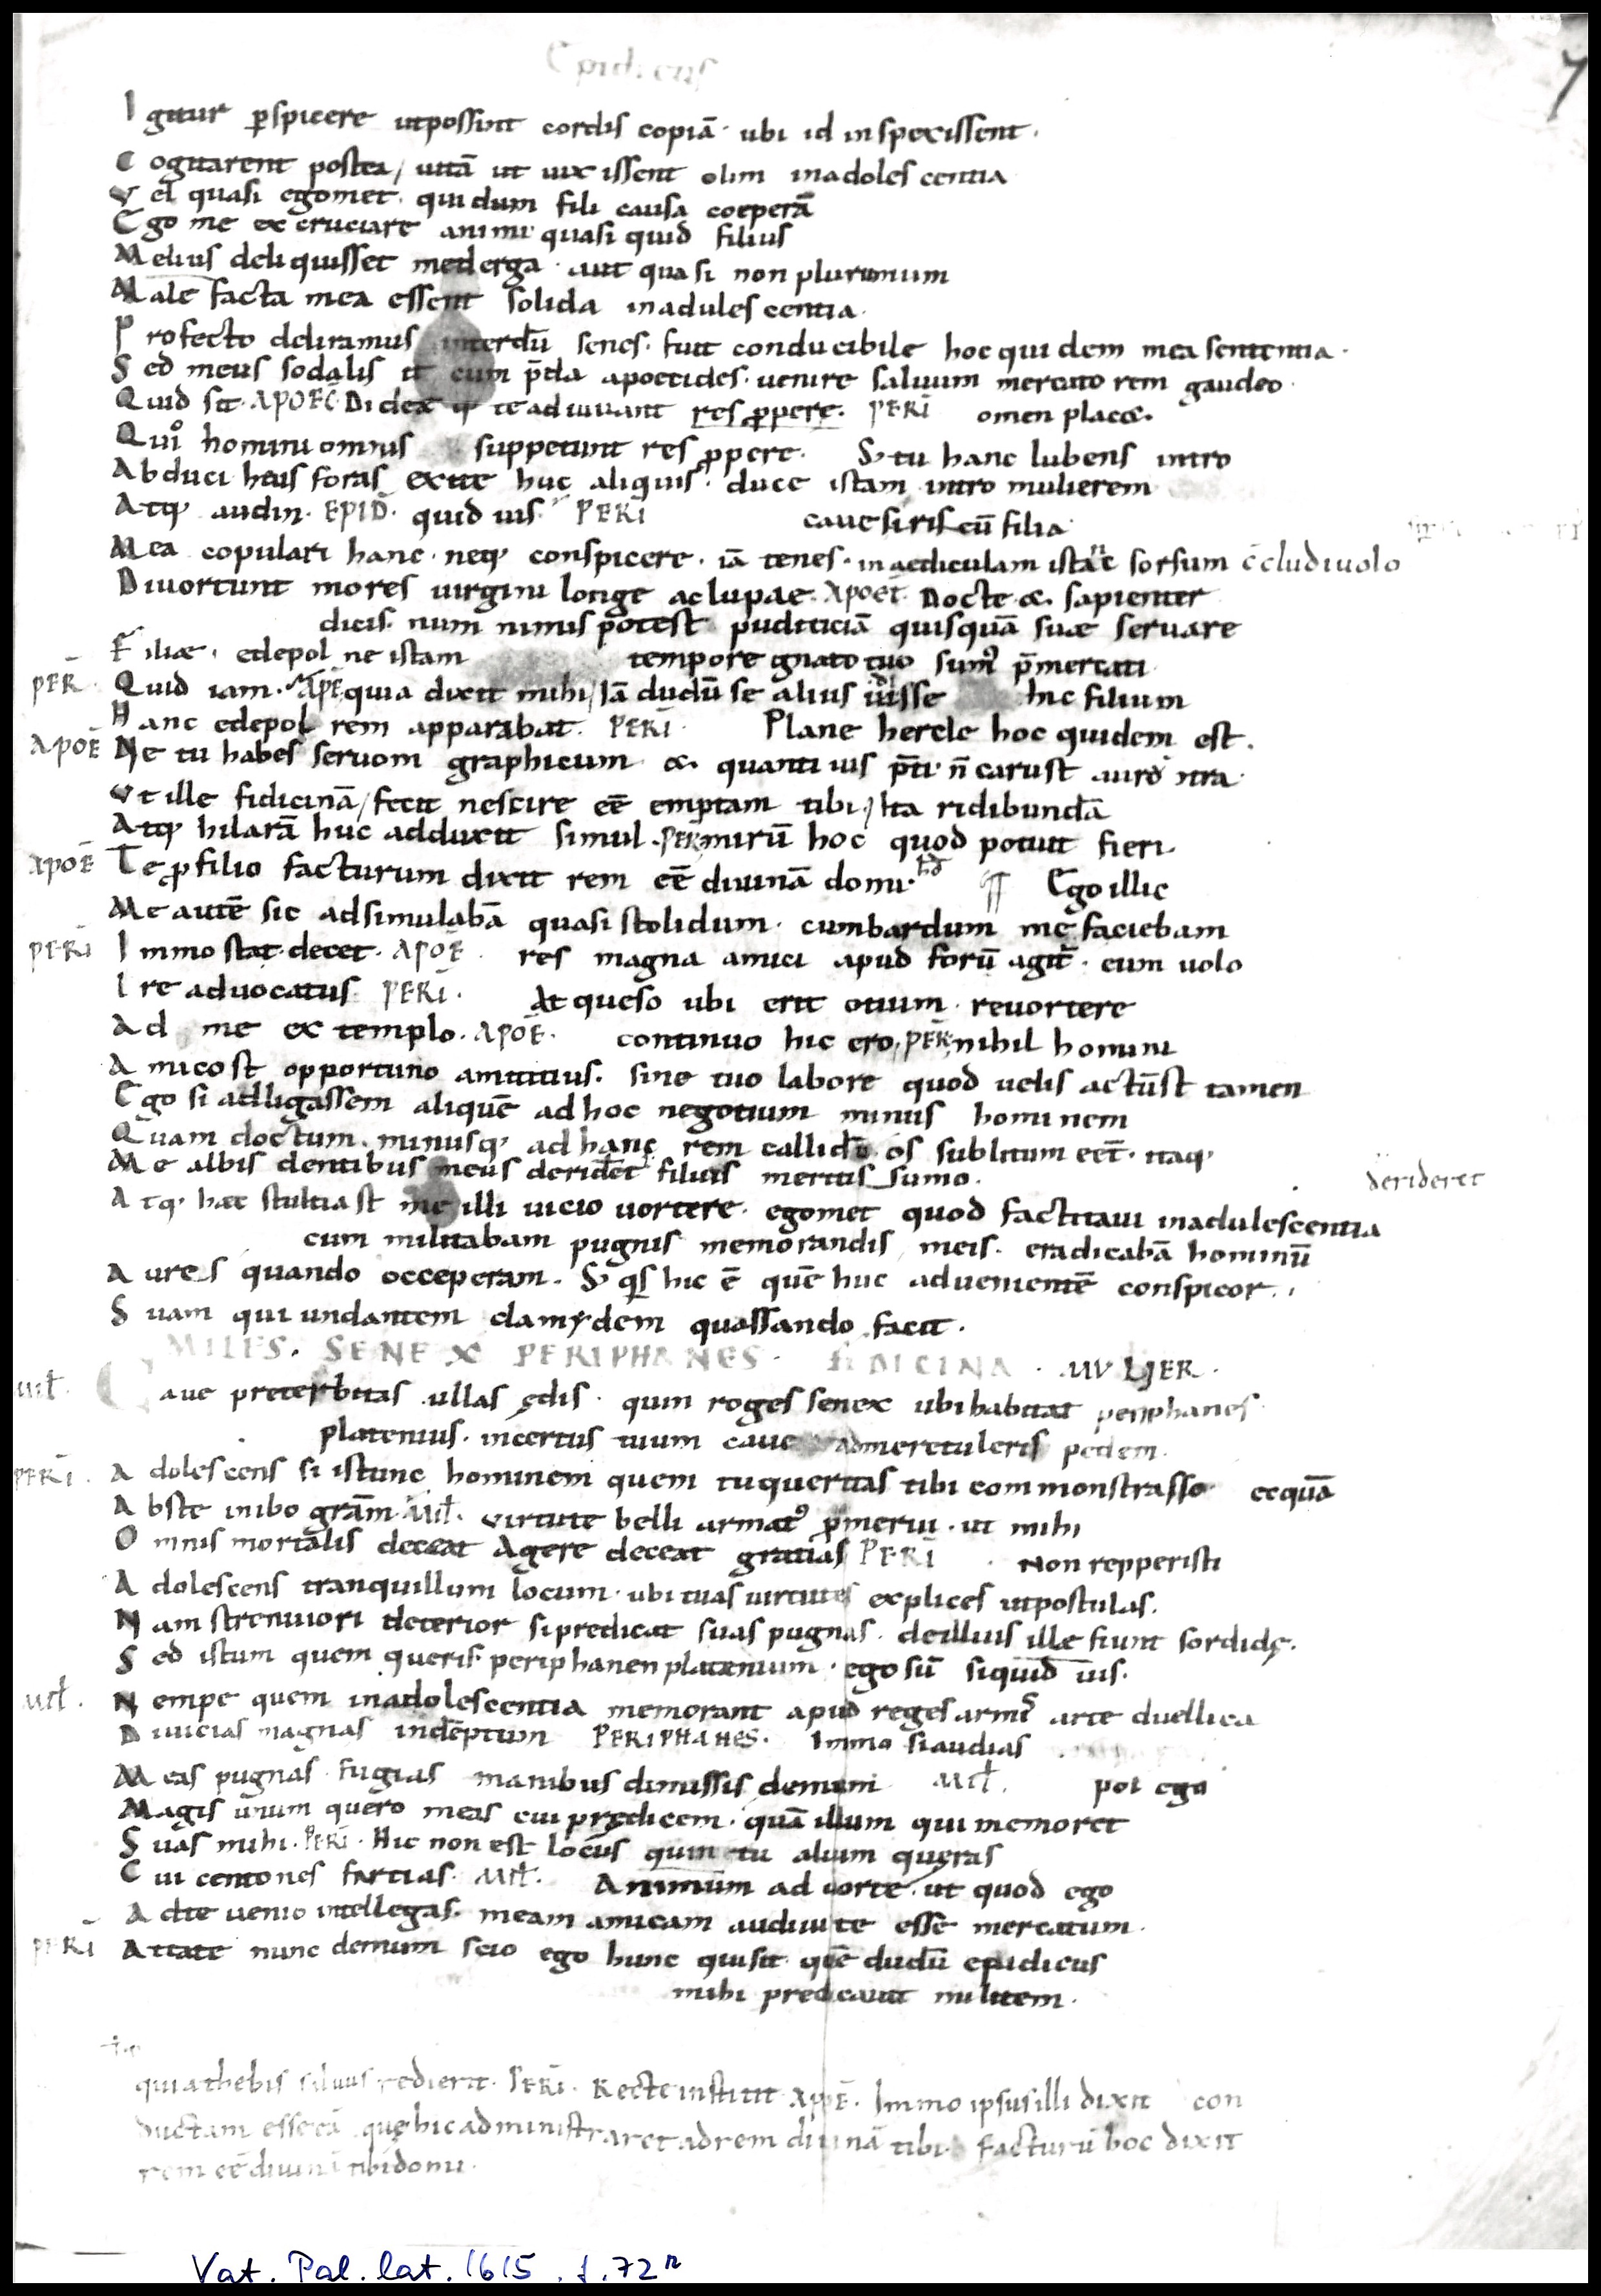 Epidicus
7
Igitur p̄spicere utpossint cordis copiā· ubi id inspexissent·
Cogitarent postea/ uitā ut uixissent olim inadolescentia
Vel quasi egomet· qui dum fili causa coeperā
Ego me excruciare animi quasi quid filius
Melius deliquisset mederga· aut quasi non plurumum
Male facta mea essent solida inadulescentia·
Profecto deliramus interdū senes· fuit conducibile hoc quidem mea sententia·
Sed meus sodalis it cum p̄da apoecides· uenire saluum mercatorem gaudeo·
Quid sit· APOEC̄ Di deae te adiuuant res ꝓpere· PERI omen placet·
Quī homini omnis suppetunt res ꝓpere· S; tu hanc lubens intro
Abduci heus foras exite huc aliquis· duce istam intro mulierem
Atq; audin· EPID̄· quid uis· PERI caue siris cū filia·
Mea copulari hanc· neq; conspicere· iā tenes· in aediculam istāc sorsum c̄cludiuolo
Diuortunt mores uirgini longe ac lupae· APOET̄ Docte &· sapienter
dicis· num nimis potest pudiciciā quisquā suae seruare
Filiae· edepol ne istam tempore gnato tuo sumꝰ p̄mercati
PER̄· Quid iam· APE quia dixit mihi/ iā dudū se alius uidisse hic filium
Hanc edepol rem apparabat· PERI· Plane hercle hoc quidem est·
APOE Ne tu habes seruom graphicum &· quantiuis p̄ti· n̄ carust auro n̄ra·
Vt ille fidicinā/ fecit nescire eē emptam tibi/ Ita ridibundā
Atq; hilarā huc adduxit simul· PER mirū hoc quod potuit fieri·
APOE Te ꝓ filio facturum dixit rem eē diuinā domi· hd Ego illic
Me autē sic adsimulabā quasi stolidum· cumbardum me faciebam
PERI Immo stat decet· APOE· res magna amici apud forū agit̄· eum uolo
Ire aduocatus PERI· At queso ubi erit otium· reuortere
Ad me extemplo· APOE· continuo hic ero· PER nihil homini
Amicost opportuno amititius· sine tuo labore quod uelis actūst tamen
Ego si adlligassem aliquē ad hoc negotium minus hominem
Quam doctum· minusq; ad hanc rem callidū os sublitum eēt· itaq;
Me albis dentibus meus deridet filius meritis sumo· derideret
Atq; haec stultiast me illi uicio uortere· egomet quod factitaui inadulescentia
cum militabam pugnis memorandis meis· eradicabā hominū
Aures quando occeperam· S; qs hic ē quē huc aduenientē conspicor·
Suam qui undantem clamydem quassando facit·
MILES· SENEX PERIPHANES· FIDICINA· MVLIER·
Mił· Caue preterbitas ullas ędis· quin roges senex ubi habitat periphanes
platenius· incertus tuum caue admeretuleris pedem·
PERI· Adolescens si istunc hominem quem tu queritas tibi commonstrasso ecquā
Abste inibo grām· Mił· Virtute belli armatꝰ ꝓmerui· ut mihi
Omnis mortalis deceat Agere deceat gratias PERI· Non repperisti
Adolescens tranquillum locum· ubi tuas uirtutes explices ut postulas·
Nam strenuiori deterior si predicat suas pugnas· de illius illae fiunt sordidę·
Sed istum quem queris periphanen platenium· ego sū siquid uis·
Mił· Nempe quem inadolescentia memorant apud reges armis arte duellica
Diuicias magnas indeptum PERIPHANES· Immo si audias
Meas pugnas fugias manibus dimissis domum Mił· pol ego
Magis unum quero meas cui prędicem· quā illum qui memoret
Suas mihi· PERI· Hic non est locus quin tu alium quęras
Cui centones fartias· Mił· Animum aduorte· ut quod ego
Adte uenio intellegas· meam amicam audiui te esse mercatum·
PERI Attate nunc demum scio ego hunc qui sit· quē dudū epidicus
mihi predicauit militem·
quia thebis saluus redierit· PERI· Recte instituit APOE· Immo ipsus illi dixit con
ductam esse eā quę hic administraret ad rem diuinā tibi· facturū hoc dixit
rem eē diuinā tibi domi·
Vat. Pal. lat. 1615. f. 72r